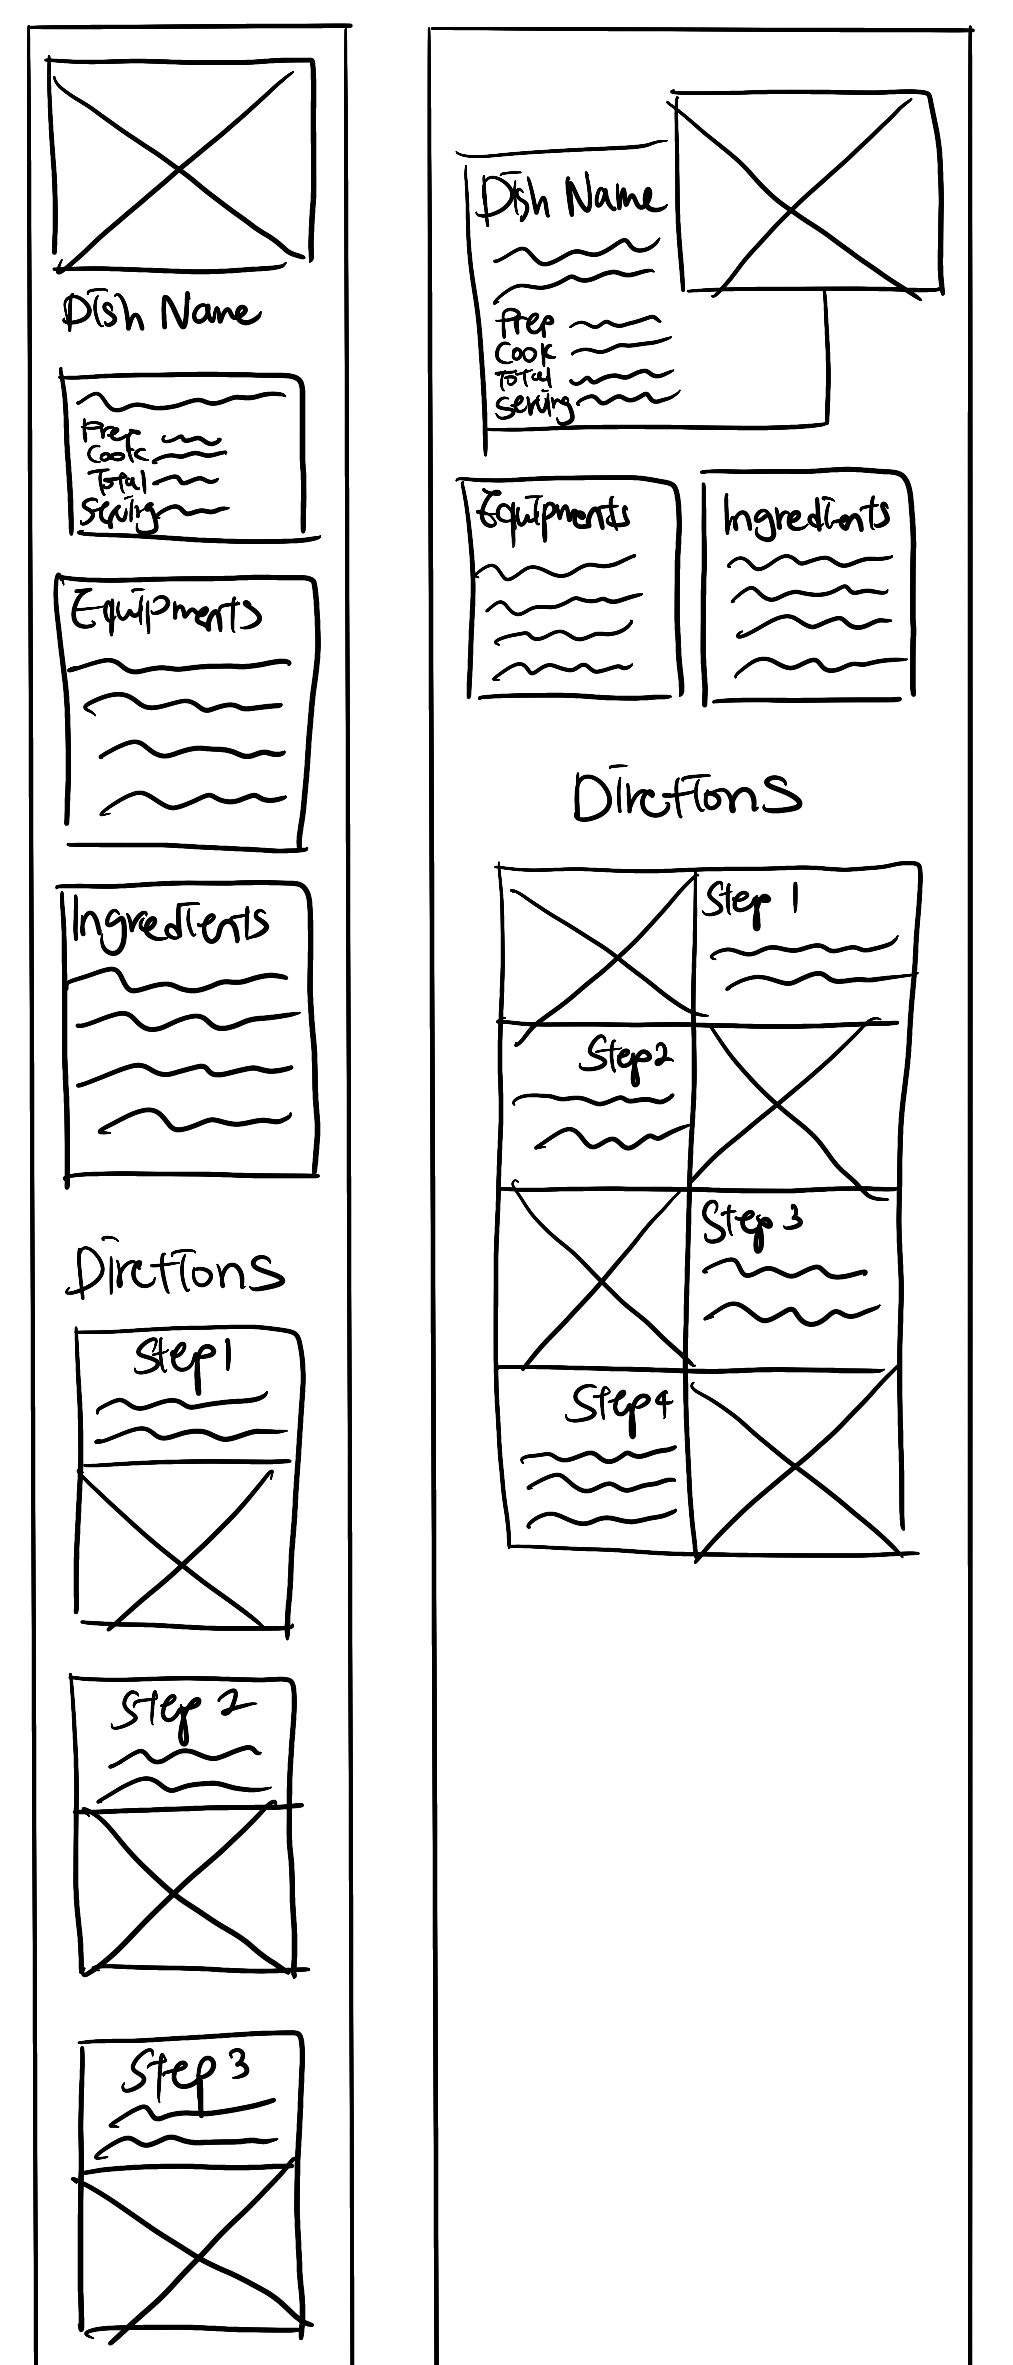 Dish Name
Prep
Cook
Total
Serving
Equipments
Ingredients
Dirctions
Step 1
Step 2
Step 3
Dish Name
Prep
Cook
Total
Serving
Equipments
Ingredients
Dirctions
Step 1
Step 2
Step 3
Step 4